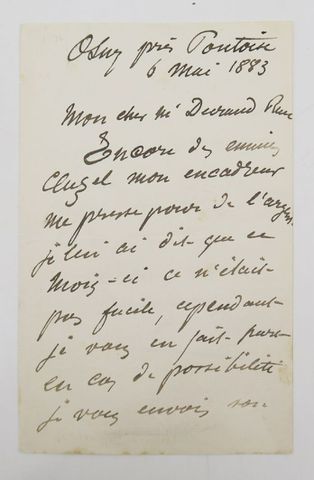 Osny près Pontoise
6 mai 1883
Mon cher Mr Durand Ruel
Encore des ennuis
Cluzel mon encadreur
me presse pour de l'argent.
je lui ai dit que ce
mois-ci ce n'était
pas facile, cependant
je vous en fait part
en cas de possibilité
je vous envois son